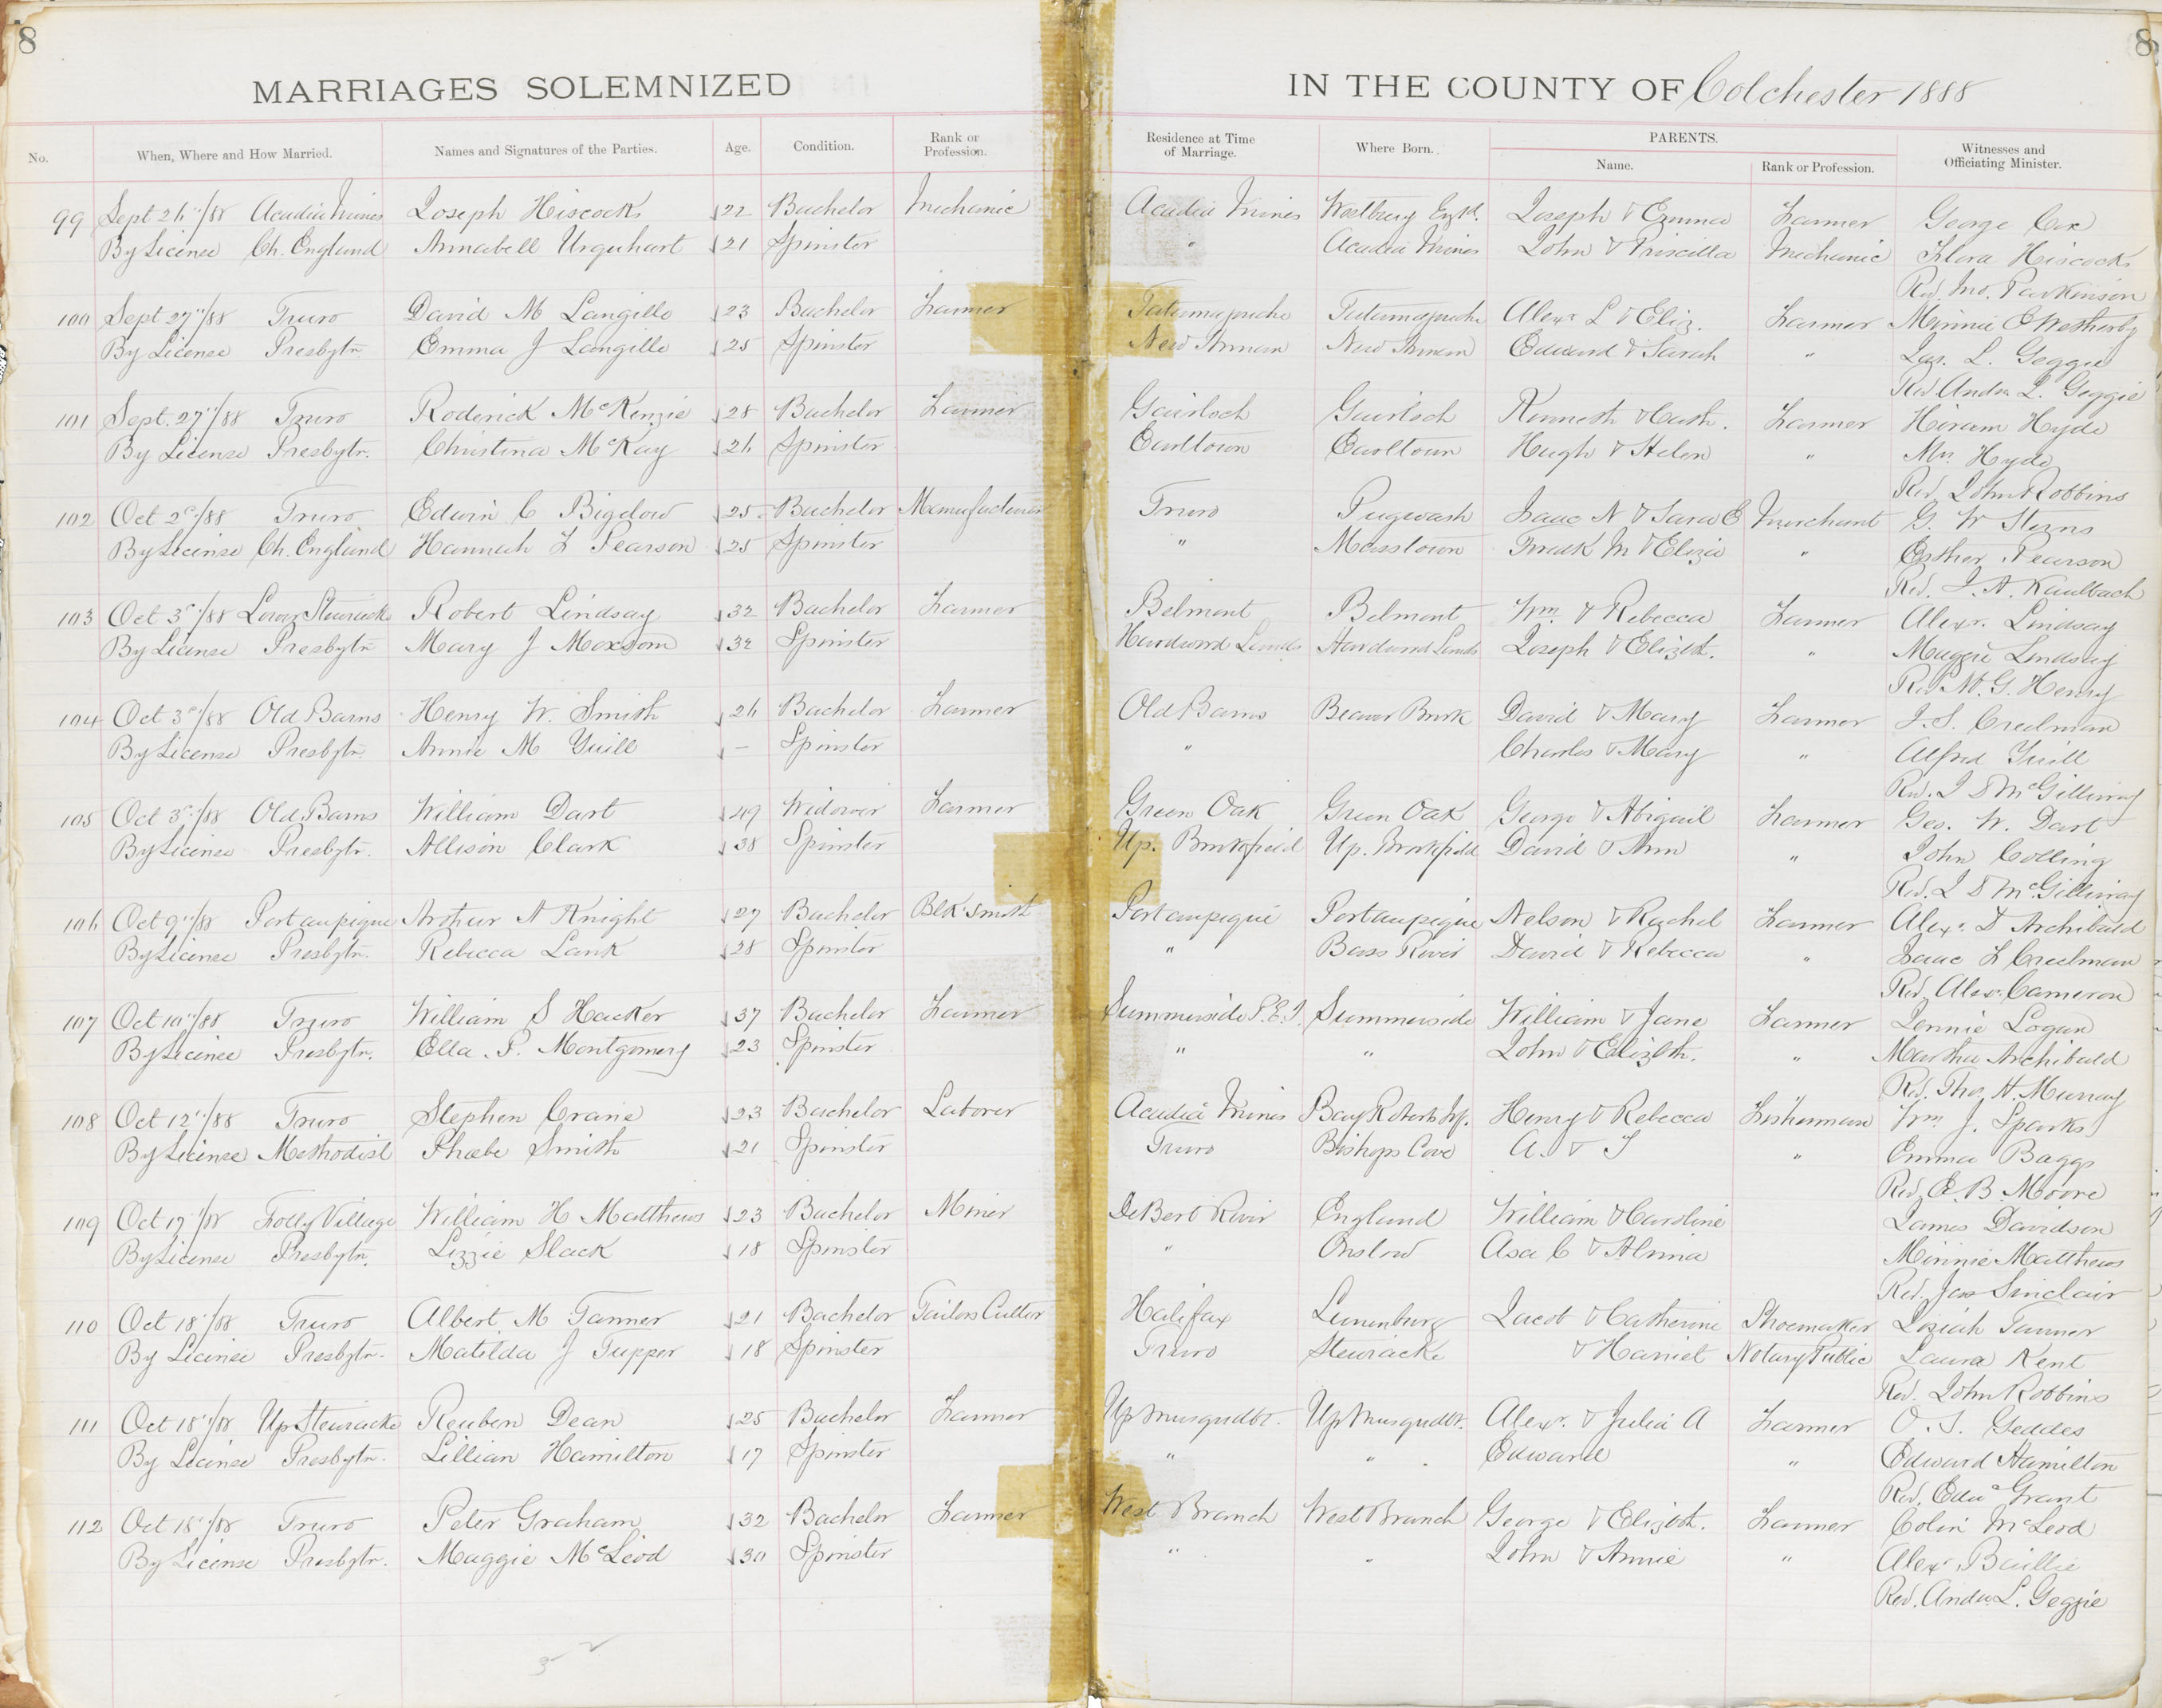 8 8
MARRIAGES SOLEMNIZED IN THE COUNTY OF Colchester 1888
No. When, Where and How Married. Names and Signatures of the Parties. Age. Condition. Rank or Profession. Residence at Time of Marriage. Where Born. PARENTS. Name. Rank or Profession. Witnesses and Officiating Minister.
99 Sept 26"/88 Acadia Mines Joseph Hiscocks 22 Bachelor Mechanic Acadia Mines Westbury Engd. Joseph & Emma Farmer George Cox
By License Ch. England Annabell Urquhart 21 Spinster " Acadia Mines John & Priscilla Mechanic Flora Hiscocks
Rev. Jno. Parkinson
100 Sept 27"/88 Truro David M Langille 23 Bachelor Farmer Tatamagouche Tatamagouche Alexr L & Eliz. Farmer Minnie C Wetherby
By License Presbytr. Emma J Langille 25 Spinster New Annan New Annan Edward & Sarah " Jas. L. Geggie
Rev Andw L. Geggie
101 Sept. 27"/88 Truro Roderick McKenzie 28 Bachelor Farmer Gairloch Gairloch Kenneth & Cath. Farmer Hiram Hyde
By License Presbytr. Christina McKay 26 Spinster Earltown Earltown Hugh & Helen " Mrs Hyde
Rev. John Robbins
102 Oct 2d/88 Truro Edwin C Bigelow 25 Bachelor Manufacturer Truro Pugwash Isaac N & Sara E Merchant G. W Sterns
By License Ch. England Hannah F Pearson 25 Spinster " Masstown Fredk M & Eliza " Esther Pearson
Rev. J. A. Kaulbach
103 Oct 3d/88 Lower Stewiacke Robert Lindsay 32 Bachelor Farmer Belmont Belmont Wm. & Rebecca Farmer Alexr. Lindsay
By License Presbytr Mary J Moxsom 32 Spinster Hardwood Lands Hardwood Lands Joseph & Elizbth. " Maggie Lindsay
Rev M. G. Henry
104 Oct 3d/88 Old Barns Henry W. Smith 26 Bachelor Farmer Old Barns Beaver Brook David & Mary Farmer J. S. Creelman
By License Presbytr. Annie M Yuill – Spinster " Charles & Mary " Alfred Yuill
Rev. J D McGillivray
105 Oct 3d/88 Old Barns William Dart 49 Widower Farmer Green Oak Green Oak George & Abigail Farmer Geo. W. Dart
By License Presbytr. Allison Clark 38 Spinster Up. Brookfield Up. Brookfield David & Ann " John Colling
Rev. J D McGillivray
106 Oct 9"/88 Portaupique Arthur A Knight 27 Bachelor Blk'smith Portaupique Portaupique Nelson & Rachel Farmer Alexr. D Archibald
By License Presbytr. Rebecca Lank 28 Spinster " Bass River David & Rebecca " Isaac F Creelman
Rev. Alexr Cameron
107 Oct 10"/88 Truro William S Hacker 37 Bachelor Farmer Summerside P.E.I. Summerside William & Jane Farmer Jennie Logan
By License Presbytr. Ella. P. Montgomery 23 Spinster " " John & Elizbth. " Martha Archibald
Rev. Tho. H. Murray
108 Oct 12"/88 Truro Stephen Crane 23 Bachelor Laborer Acadia Mines Bay Roberts Nf. Henry & Rebecca Fisherman Wm J. Sparks
By License Methodist Phœbe Smith 21 Spinster Truro Bishops Cove A. & T " Emma Baggs
Rev. E. B. Moore
109 Oct 17"/88 Folly Village William H Matthews 23 Bachelor Miner DeBert River England William & Caroline James Davidson
By License Presbytr. Lizzie Slack 18 Spinster " Onslow Asa C & Almia Minnie Matthews
Rev. Jas Sinclair
110 Oct 18"/88 Truro Albert M Tanner 21 Bachelor Tailors Cutter Halifax Lunenburg Jacob & Catherine Shoemaker Josiah Tanner
By License Presbytr. Matilda J Tupper 18 Spinster Truro Stewiacke & Harriet Notary Public Laura Kent
Rev. John Robbins
111 Oct 18"/88 Up Stewiacke Reuben Dean 25 Bachelor Farmer Up Musqudbt. Up Musqudbt. Alexr. & Julia A Farmer O. S. Geddes
By License Presbytr. Lillian Hamilton 17 Spinster " " Edward " Edward Hamilton
Rev. Edwd Grant
112 Oct 18"/88 Truro Peter Graham 32 Bachelor Farmer West Branch West Branch George & Elizbth. Farmer Colin McLeod
By License Presbytr. Maggie McLeod 30 Spinster " " John & Annie " Alexr Baillie
Rev. Andw L. Geggie